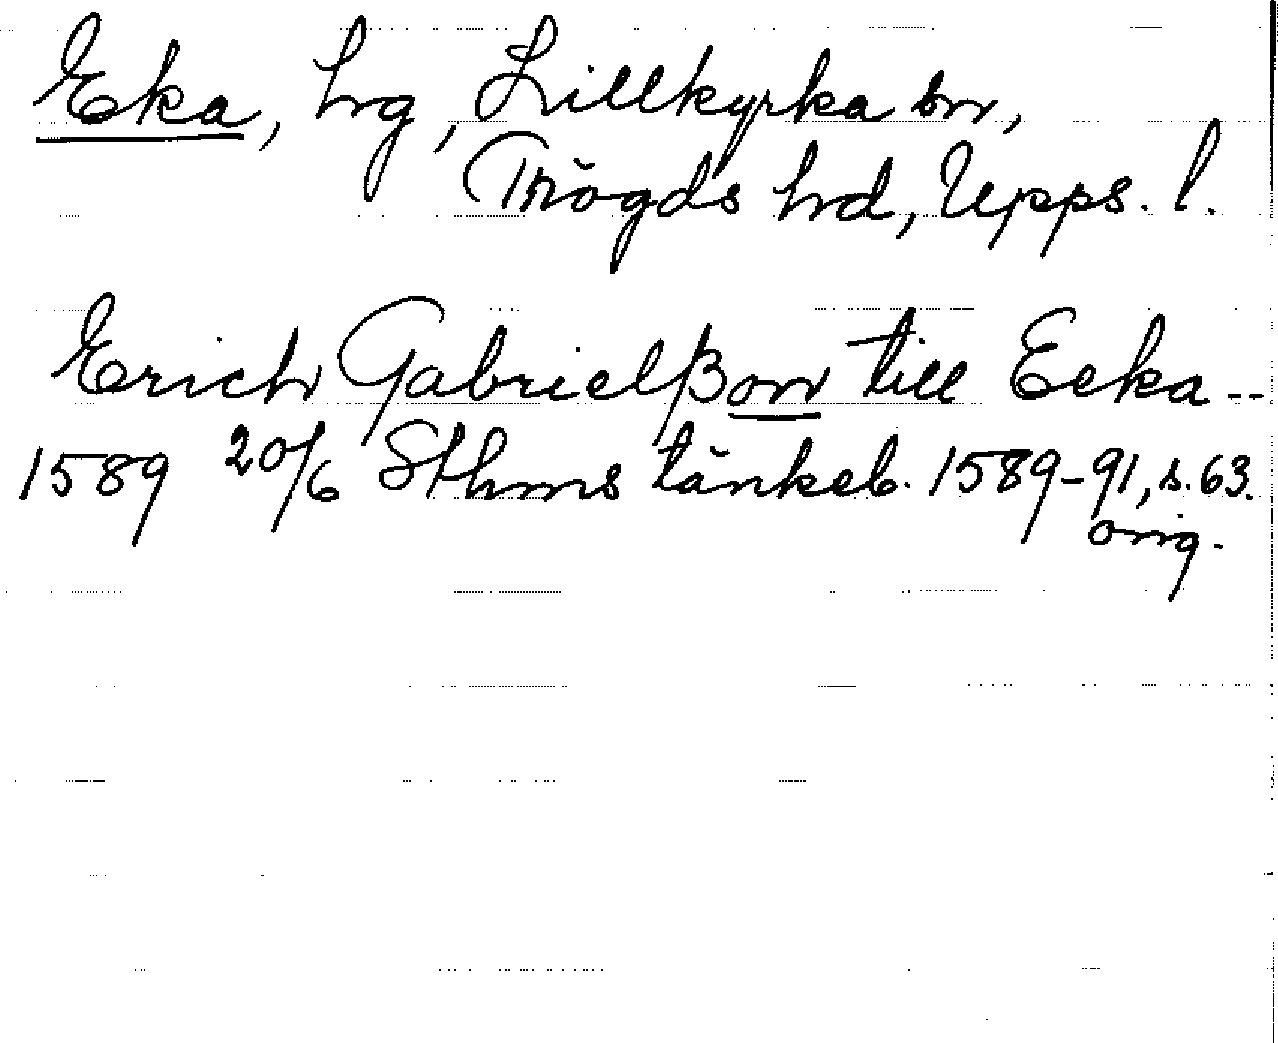 Eka, hrg, Lillkyrka sn,
Trögds hrd, Upps. l.
Erich Gabrielßonn till Eeka --
1589 20/6 Sthms tänkeb. 1589-91, s. 63.
orig.